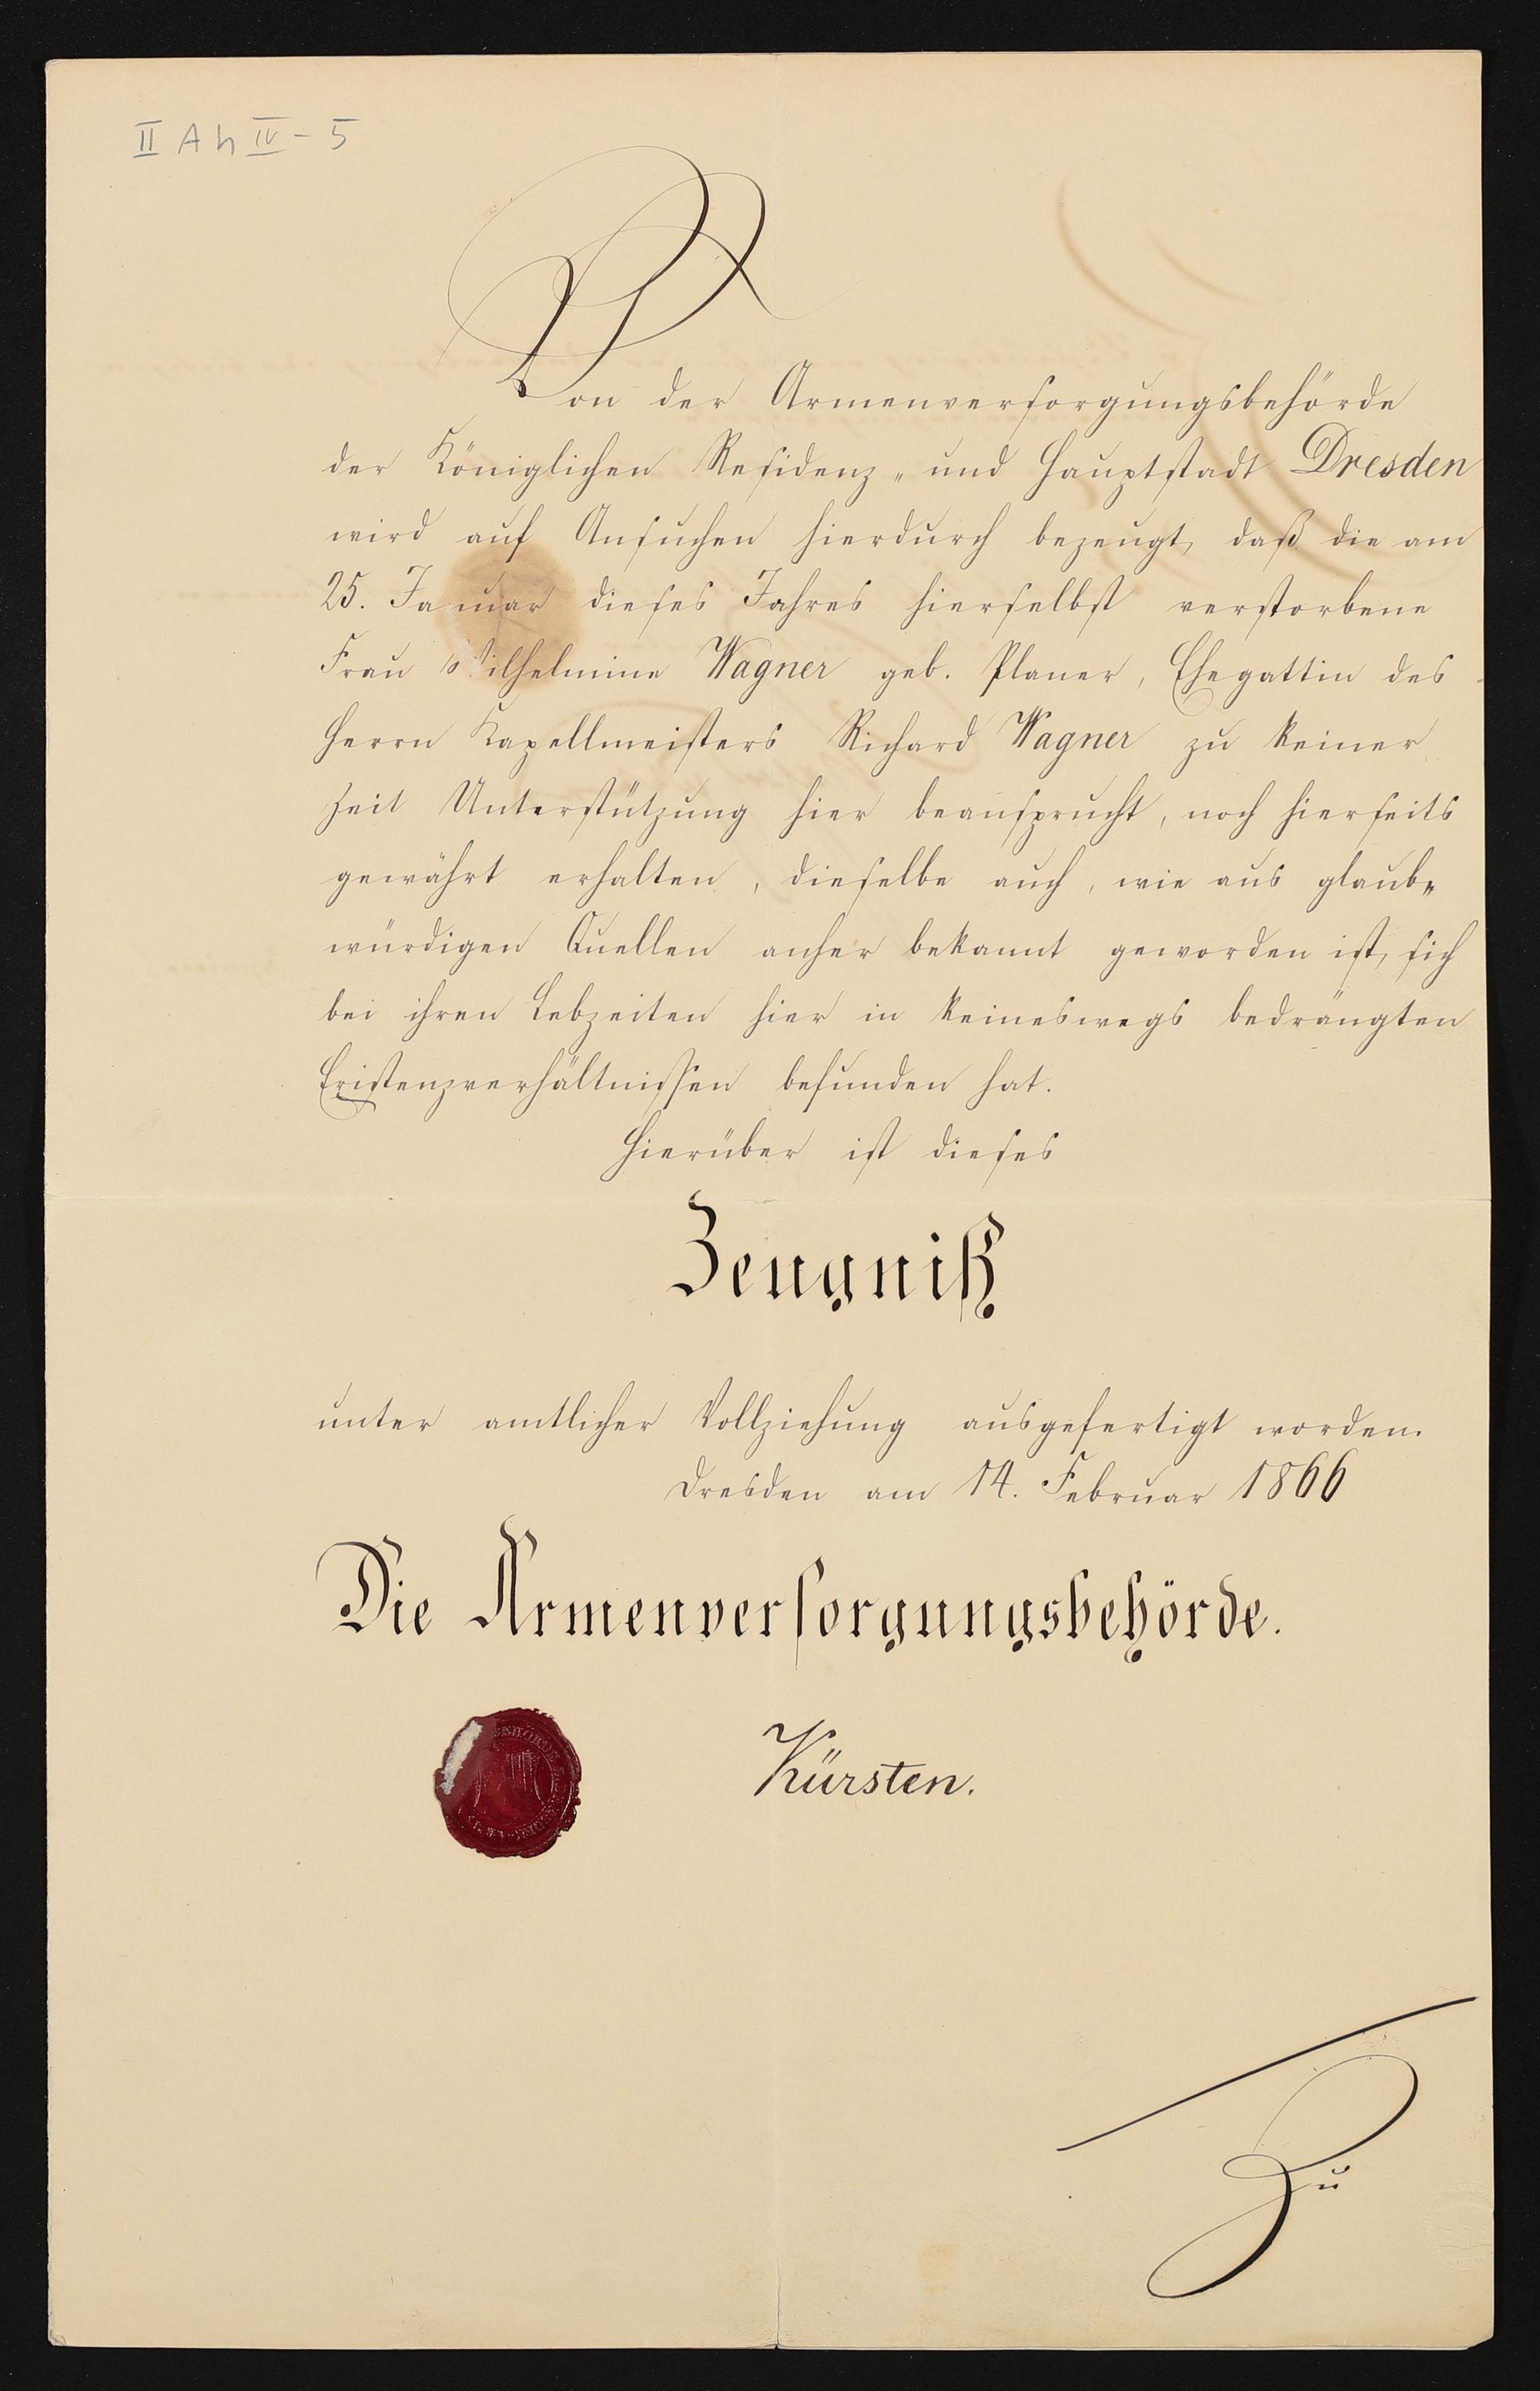 II A h IV - 5
Von der Armenversorgungsbehörde
der Königlichen Residenz- und Hauptstadt Dresden
wird auf Ansuchen hierdurch bezeugt, daß die am
25. Januar dieses Jahres hierselbst verstorbene
Frau Wilhelmine Wagner geb. Planer, Ehegattin des
Herrn Kapellmeisters Richard Wagner zu keiner
Zeit Unterstützung hier beansprucht, noch hierseits
gewährt erhalten, dieselbe auch, wie aus glaub-
würdigen Quellen anher bekannt geworden ist, sich
bei ihren Lebzeiten hier in keineswegs bedrängten
Existenzverhältnissen befunden hat.
Hierüber ist dieses
Zeugniß
unter amtlicher Vollziehung ausgefertigt worden.
Dresden am 14. Februar 1866
Die Armenversorgungsbehörde.
Kürsten.
Zu